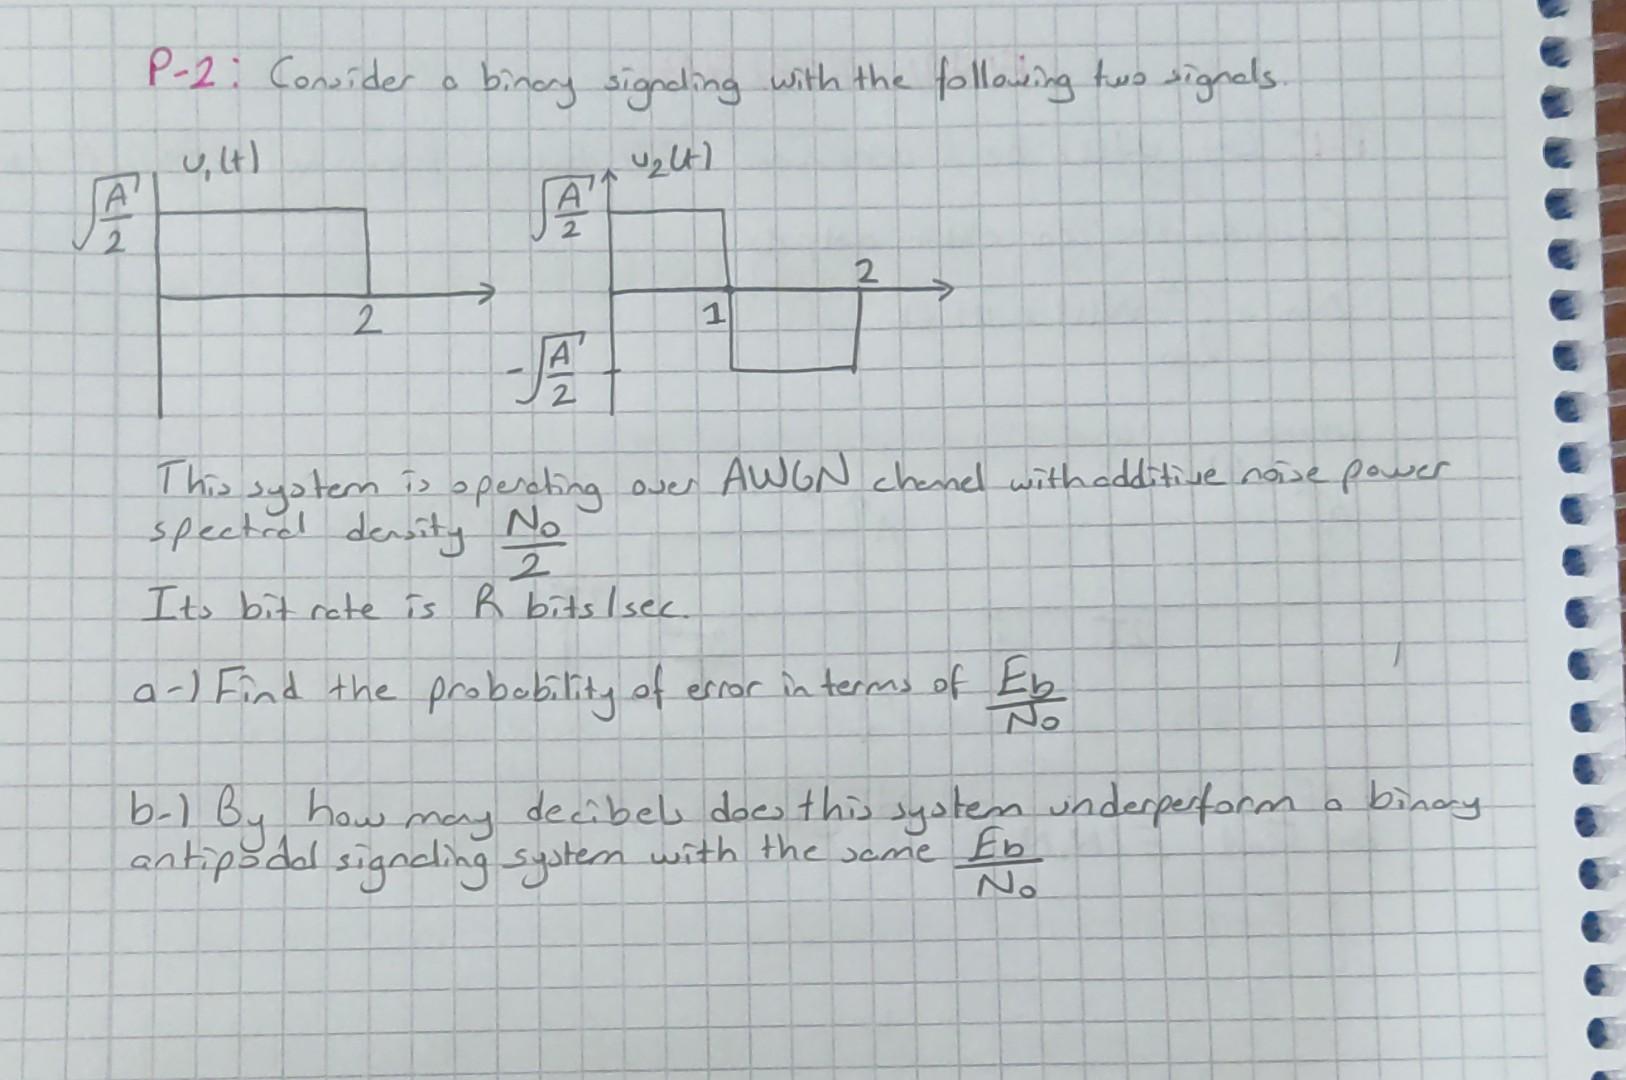 P-2: Consider a binary signaling with the following two signals.
u₁(t)
u₂(t)
√(A/2)
√(A/2)
2
1
2
-√(A/2)
This system is operating over AWGN channel with additive noise power
spectral density N₀/2
Its bit rate is R bits/sec.
a-) Find the probability of error in terms of Eb/N₀
b-) By how may decibels does this system underperform a binary
antipodal signaling system with the same Eb/N₀